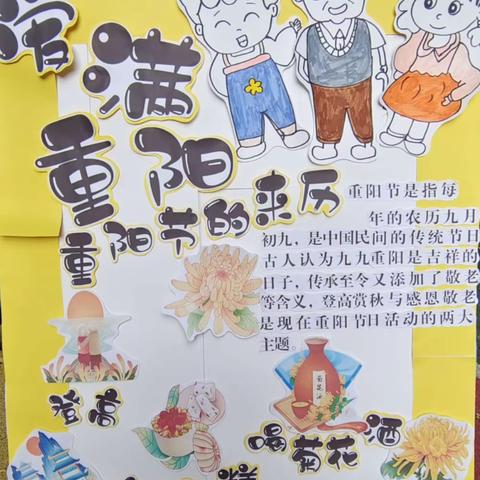 满
重阳
重阳节的来历
重阳节是指每
年的农历九月
初九，是中国民间的传统节日
古人认为九九重阳是吉祥的
日子，传承至今又添加了敬老
等含义，登高赏秋与感恩敬老
是现在重阳节日活动的两大
主题。
登高
喝菊花酒
糕